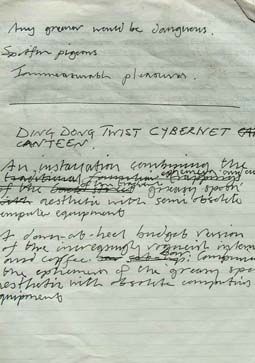 Any greener would be dangerous.
Spotfin pigeons
Immeasurable pleasures.
DING DONG TWIST CYBERNET
CANTEEN.
An installation combining the
traditional ephemera and
of the greasy spoon
aesthetic with semi obsolete
computer equipment
A down-at-heel budget version
of the increasingly vogueish internet
and coffee bar
the ephemera of the greasy spoon
aesthetic with obsolete computing
equipment